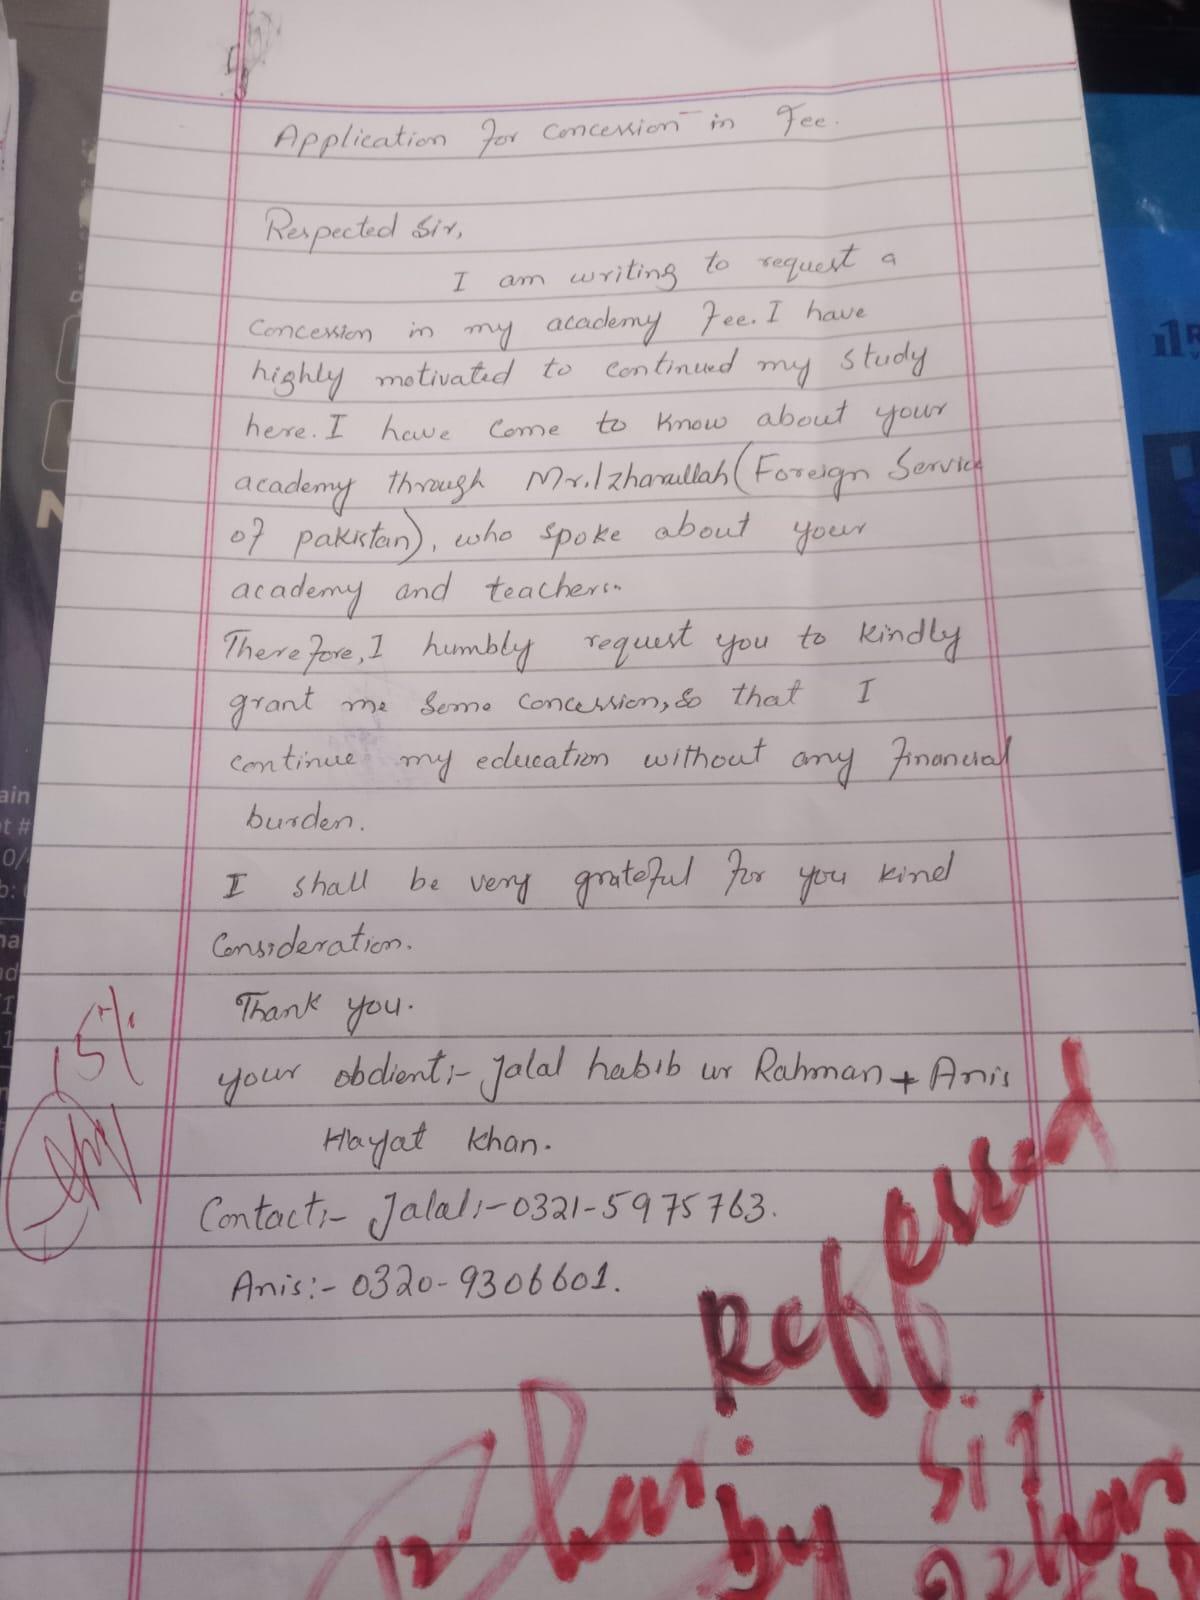 Application for concession in Fee.
Respected Sir,
I am writing to request a
concession in my academy Fee. I have
highly motivated to continued my study
here. I have come to know about your
academy through Mr. Izharullah (Foreign Service
of pakistan), who spoke about your
academy and teachers.
Therefore, I humbly request you to kindly
grant me some concession, so that I
continue my education without any financial
burden.
I shall be very grateful for you kind
consideration.
Thank you.
your obdient:- Jalal habib ur Rahman + Anis
Hayat khan.
Contact:- Jalal:- 0321-5975763.
Anis:- 0320-9306601.
15%
Reffessed
by Sir